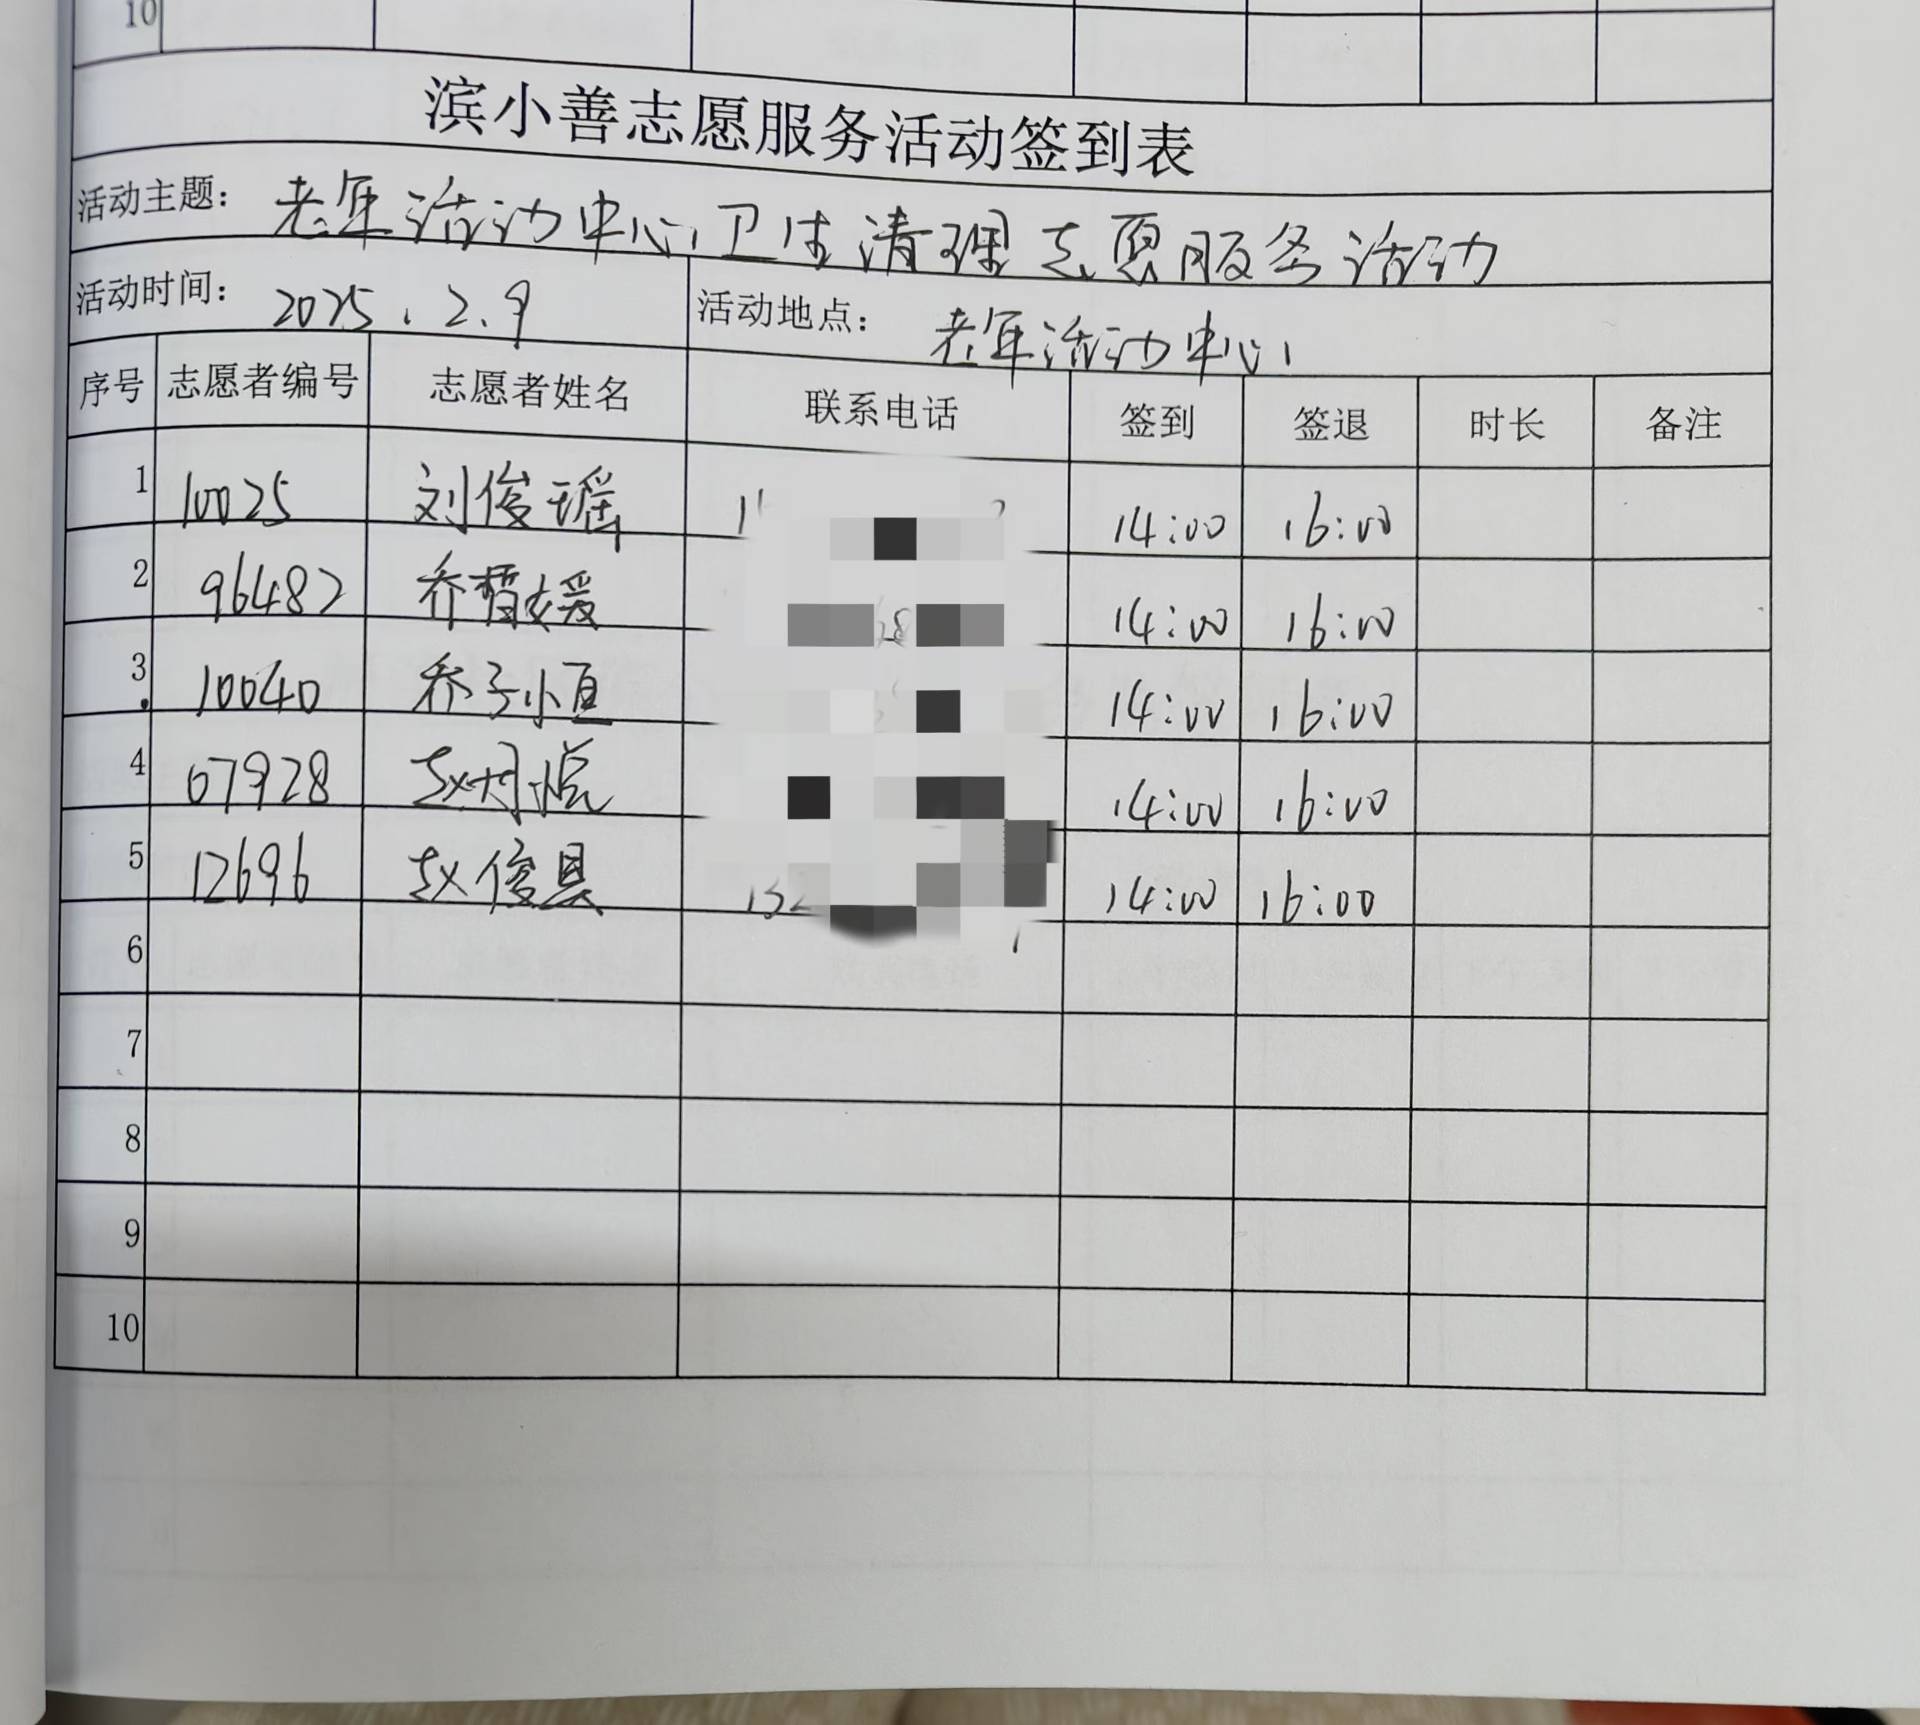 10
滨小善志愿服务活动签到表
活动主题: 老年活动中心卫生清理志愿服务活动
活动时间: 2025.2.9 活动地点: 老年活动中心
序号 志愿者编号 志愿者姓名 联系电话 签到 签退 时长 备注
1 10025 刘俊瑶 14:00 16:00
2 96482 乔哲媛 14:00 16:00
3 10040 乔子恒 14:00 16:00
4 07928 赵月悦 14:00 16:00
5 12696 赵俊 14:00 16:00
6
7
8
9
10